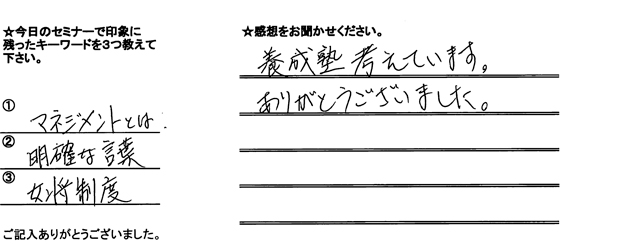 ★今日のセミナーで印象に
残ったキーワードを3つ教えて
下さい。
①
マネジメントとは!
②
明確な言葉
③
女将制度
ご記入ありがとうございました。
★感想をお聞かせください。
養成塾 考えています。
ありがとうございました。